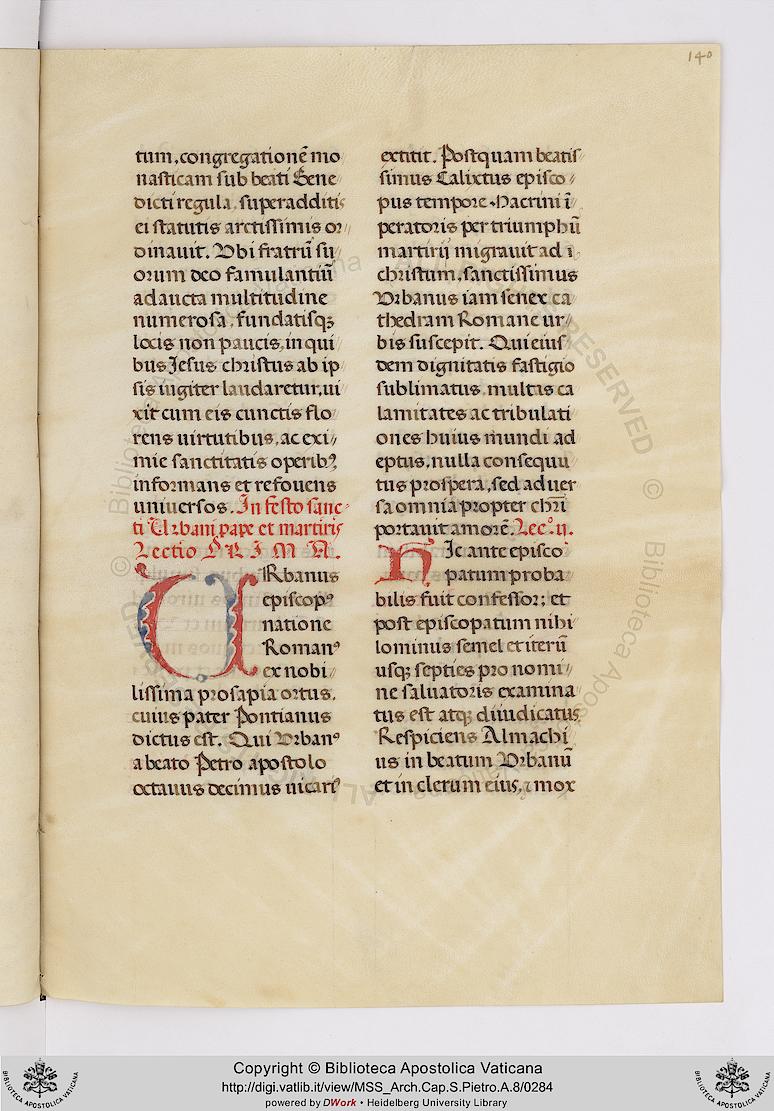 140
tum, congregationē mo
nasticam sub beati Bene
dicti regula, superadditis
ei statutis arctissimis or
dinauit. Vbi fratrū su
orum deo famulantiū
adaucta multitudine
numerosa, fundatisqꝫ
locis non paucis, in qui
bus Jesus christus ab ip
sis iugiter laudaretur, ui
xit cum eis cunctis flo
rens uirtutibus, ac exi
mie sanctitatis operibꝫ
informans et refouens
uniuersos. In festo sanc
ti Urbani pape et martiris
Lectio PRIMA.
URbanus
episcopꝰ
natione
Romanꝰ
ex nobi
lissima prosapia ortus,
cuius pater Pontianus
dictus est. Qui Vrbanꝰ
a beato Petro apostolo
octauus decimus uicariꝰ
extitit. Postquam beatis
simus Calixtus episco
pus tempore Macrini ī
peratoris per triumphū
martirij migrauit ad
christum, sanctissimus
Vrbanus iam senex ca
thedram Romane ur
bis suscepit. Qui eius
dem dignitatis fastigio
sublimatus, multas ca
lamitates ac tribulati
ones huius mundi ad
eptus, nulla consequu
tus prospera, sed aduer
sa omnia propter chr̄i
portauit amorē. Lecº. ij.
HIc ante episco
patum proba
bilis fuit confessor; et
post episcopatum nihi
lominus semel et iterū
usqꝫ septies pro nomi
ne saluatoris examina
tus est atqꝫ diiudicatus
Respiciens Almachi
us in beatum Vrbanū
et in clerum eius, ⁊ mox
Copyright © Biblioteca Apostolica Vaticana
http://digi.vatlib.it/view/MSS_Arch.Cap.S.Pietro.A.8/0284
powered by DWork • Heidelberg University Library
BIBLIOTECA APOSTOLICA VATICANA
BIBLIOTECA APOSTOLICA VATICANA